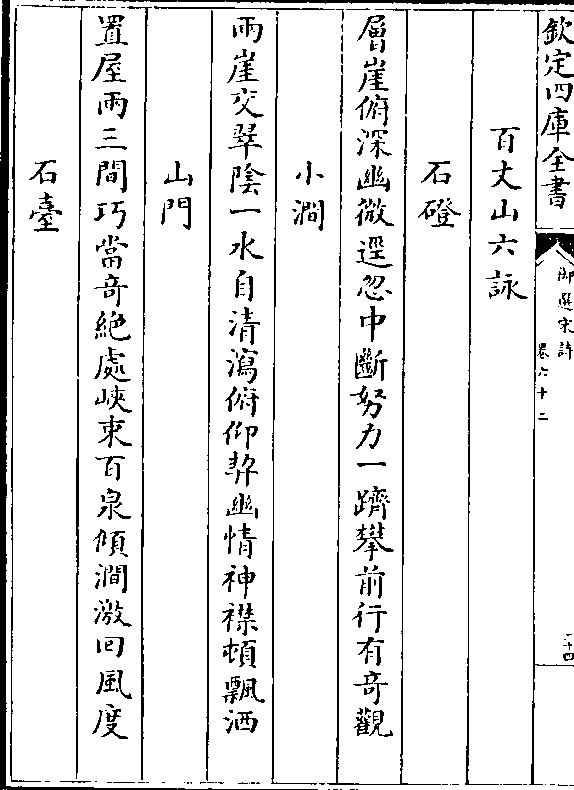 欽定四庫全書
御選宋詩
卷六十二
二十四
百丈山六詠
石磴
層崖俯深幽微逕忽中斷努力一躋攀前行有奇觀
小澗
兩崖交翠陰一水自清瀉俯仰契幽情神襟頓飄洒
山門
置屋兩三間巧當奇絶處峽束百泉傾澗激回風度
石臺